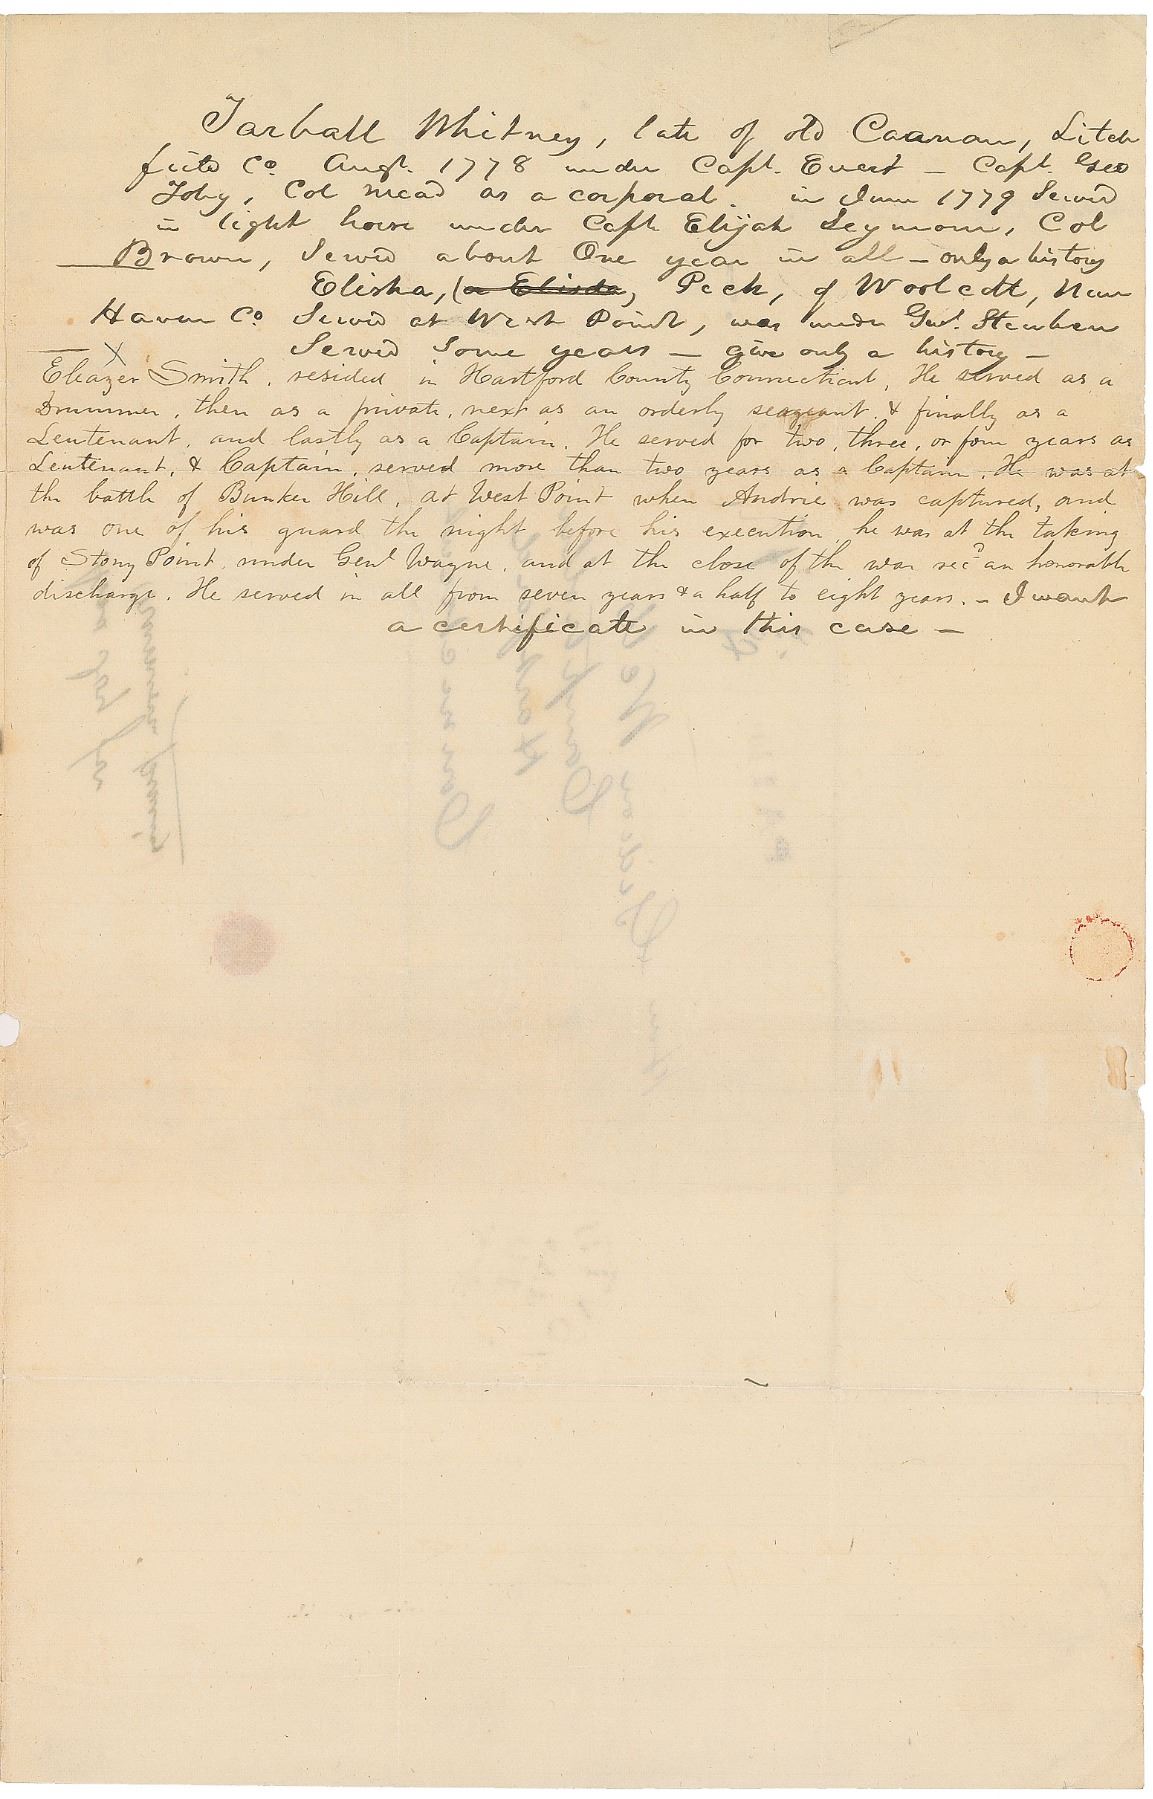 Tarball Whitney, late of old Caanan, Litch
field Co. Augt. 1778 under Capt. Evert – Capt. Geo
Toby, Col Mead as a corporal. in June 1779 Served
in light horse under Capt Elijah Seymour, Col
Brown, Served about One year in all – only a history
Elisha, (a Elisda) Peck, of Woolcott, New
Haven Co Served at West Point, was under Genl. Steuben
Served Some years – give only a history –
X
Eleazer Smith, resided in Hartford County Connecticut, He served as a
Drummer, then as a private, next as an orderly seargeant & finally as a
Leutenant, and lastly as a Captain. He served for two, three, or four years as
Leutenant, & Captain, served more than two years as a Captain. He was at
the battle of Bunker Hill, at West Point when Andrie was captured, and
was one of his guard the night before his execution, he was at the taking
of Stony Point, under Genl Wayne, and at the close of the war recd an honorable
discharge. He served in all from seven years & a half to eight years. – I want
a certificate in this case –